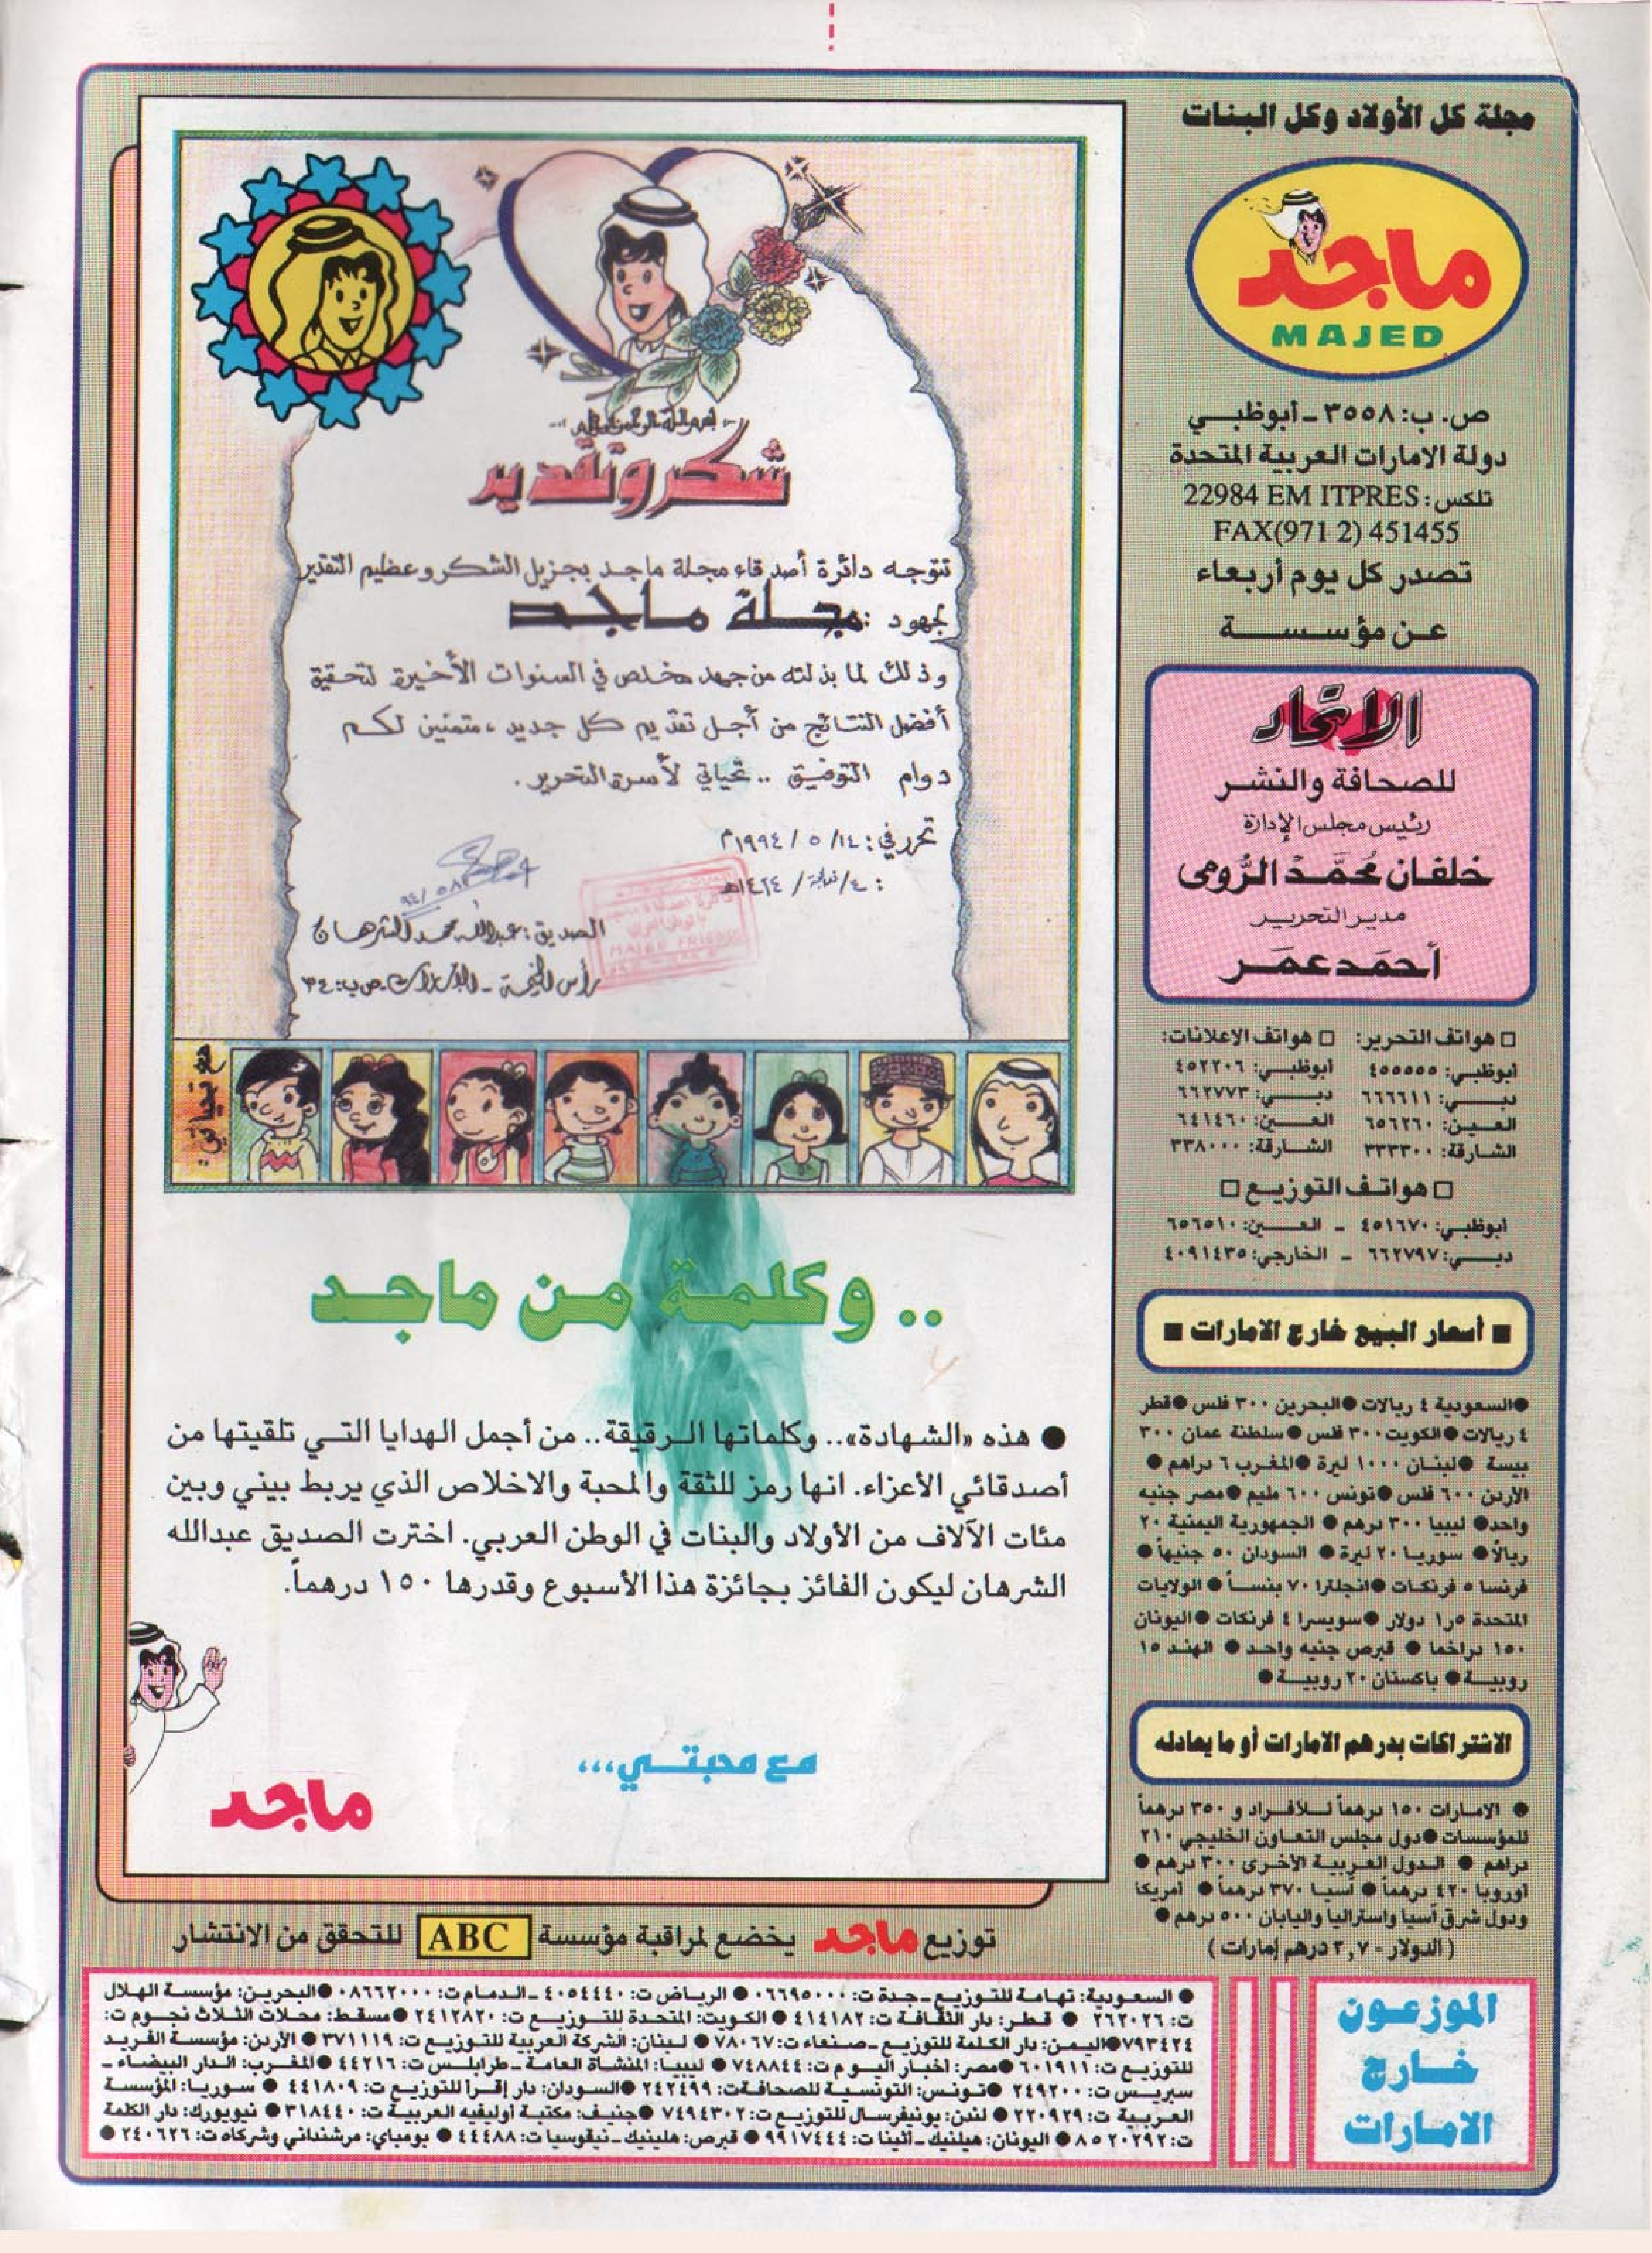 مجلة كل الأولاد وكل البنات
ماجد
MAJED
ص. ب: ٣٥٥٨ - أبوظبـي
دولة الامارات العربية المتحدة
تلكس: 22984 EM ITPRES
FAX(971 2) 451455
تصدر كل يوم أربعاء
عـن مؤسـسـة
الاتحاد
للصحافة والنشـر
رئيس مجلس الإدارة
خلفان محمد الرومى
مدير التحرير
أحمد عمر
□ هواتف التحرير: □ هواتف الاعلانات:
أبوظبـي: ٤٥٥٥٥٥ أبوظبـي: ٤٥٢٢٠٦
دبـــي: ٦٦٦٦١١ دبـــي: ٦٦٢٧٧٣
العـين: ٦٥٦٢٦٠ العـــين: ٦٤١٤٦٠
الشـارقة: ٣٣٣٣٠٠ الشـارقة: ٣٣٨٠٠٠
□ هواتـف التوزيـع □
أبوظبـي: ٤٥١٦٧٠ - العـــين: ٦٥٦٥١٠
دبـــي: ٦٦٢٧٩٧ - الخارجي: ٤٠٩١٤٣٥
■ أسعار البيع خارج الامارات ■
●السعودية ٤ ريالات ●البحرين ٣٠٠ فلس ●قطر
٤ ريالات ●الكويت ٣٠٠ فلس ●سلطنة عمان ٣٠٠
بيسة ●لبنـان ١٠٠٠ ليرة ●المغـرب ٦ دراهم ●
الأردن ٦٠٠ فلس ●تونس ٦٠٠ مليم ●مصر جنيه
واحد● ليبيا ٣٠٠ درهم ● الجمهورية اليمنية ٢٠
ريالاً● سوريـا ٢٠ ليرة ● السودان ٥٠ جنيهاً ●
فرنسا ٥ فرنكـات ●انجلترا ٧٠ بنسـاً ● الولايات
المتحدة ١٫٥ دولار ●سويسرا ٤ فرنكات ●اليونان
١٥٠ دراخما ● قبرص جنيه واحـد ● الهنـد ١٥
روبيـــة ● باكستان ٢٠ روبيـــة ●
الاشتراكات بدرهم الامارات أو ما يعادله
● الامـارات ١٥٠ درهمـاً لـلأفـراد و ٣٥٠ درهماً
للمؤسسات ●دول مجلس التعـاون الخليجي ٢١٠
دراهم ● الـدول العـربيـة الأخـرى ٣٠٠ درهم ●
أوروبا ٤٢٠ درهمـاً ● آسيـا ٣٧٠ درهمـاً ● أمريكا
ودول شرق آسيا واستراليا واليابان ٥٠٠ درهم ●
( الدولار = ٣,٧ درهم إمارات )
شكر وتقدير
تتوجه دائرة أصدقاء مجلة ماجد بجزيل الشكر وعظيم التقدير
لجهود : مجلة ماجد
وذلك لما بذلته من جهد مخلص في السنوات الأخيرة لتحقيق
أفضل النتائج من أجل تقديم كل جديد ، متمنين لكم
دوام التوفيق .. تحياتي لأسرة التحرير .
تحرر في : ١٤/ ٥ / ١٩٩٤م
الصديق : عبدالله محمد الشرهان
رأس الخيمة - الامارات ص ب : ٣٤
MAJED FRIENDS
مع تحياتي :
.. وكلمة من ماجد
● هذه «الشهادة».. وكلماتها الـرقيقة.. من أجمل الهدايا التـي تلقيتها من
أصدقائي الأعزاء. انها رمز للثقة والمحبة والاخلاص الذي يربط بيني وبين
مئات الآلاف من الأولاد والبنات في الوطن العربي. اخترت الصديق عبدالله
الشرهان ليكون الفائز بجائزة هذا الأسبوع وقدرها ١٥٠ درهماً.
مع محبتـي...
ماجد
توزيع ماجد يخضع لمراقبة مؤسسة ABC للتحقق من الانتشار
الموزعـون
خـارج
الامـارات
● السعودية: تهامـة للتوزيـع -جدة ت: ٠٦٦٩٥٠٠٠ ● الرياض ت: ٤٠٥٤٤٤٠ -الدمـام ت: ٠٨٦٦٢٠٠٠ ●البحريـن: مؤسسـة الهلال
ت: ٢٦٢٠٢٦ ● قطـر: دار الثقـافة ت: ٤١٤١٨٢ ● الكويت: المتحدة للتـوزيـع ت: ٢٤١٢٨٢٠ ●مسقـط: محلات الثلاث نجـوم ت:
٧٩٣٤٢٤ ●اليمن: دار الكلمة للتوزيع -صنعاء ت: ٧٨٠٦٧ ● لبنان: الشركة العربية للتوزيع ت: ٣٧١١١٩ ● الأردن: مؤسسة الفريد
للتوزيع ت: ٦٠١٩١١ ●مصر: أخبار اليـوم ت: ٧٤٨٨٤٤ ● ليبيـا: المنشاة العامة -طرابلـس ت: ٤٤٢١٦ ●المغـرب: الـدار البيضـاء -
سبريـس ت: ٢٤٩٢٠٠ ●تـونس: التونسيـة للصحافة ت: ٢٤٢٤٩٩ ●السودان: دار إقـرأ للتوزيـع ت: ٤٤١٨٠٩ ● سوريـا: المؤسسـة
العربيـة ت: ٢٢٠٩٢٩ ● لندن: يونيفرسال للتوزيع ت: ٧٤٩٤٣٠٢ ●جنيف: مكتبـة أوليفيه العربيـة ت: ٣١٨٤٤٠ ● نيويورك: دار الكلمة
ت: ٨٥٢٠٢٩٢ ● اليونان: هيلنيك -أثينا ت: ٩٩١٧٤٤٤ ● قبرص: هلينيك -نيقوسيا ت: ٤٤٤٨٨ ● بومباي: مرشنداني وشركاه ت: ٢٤٠٦٢٦ ●